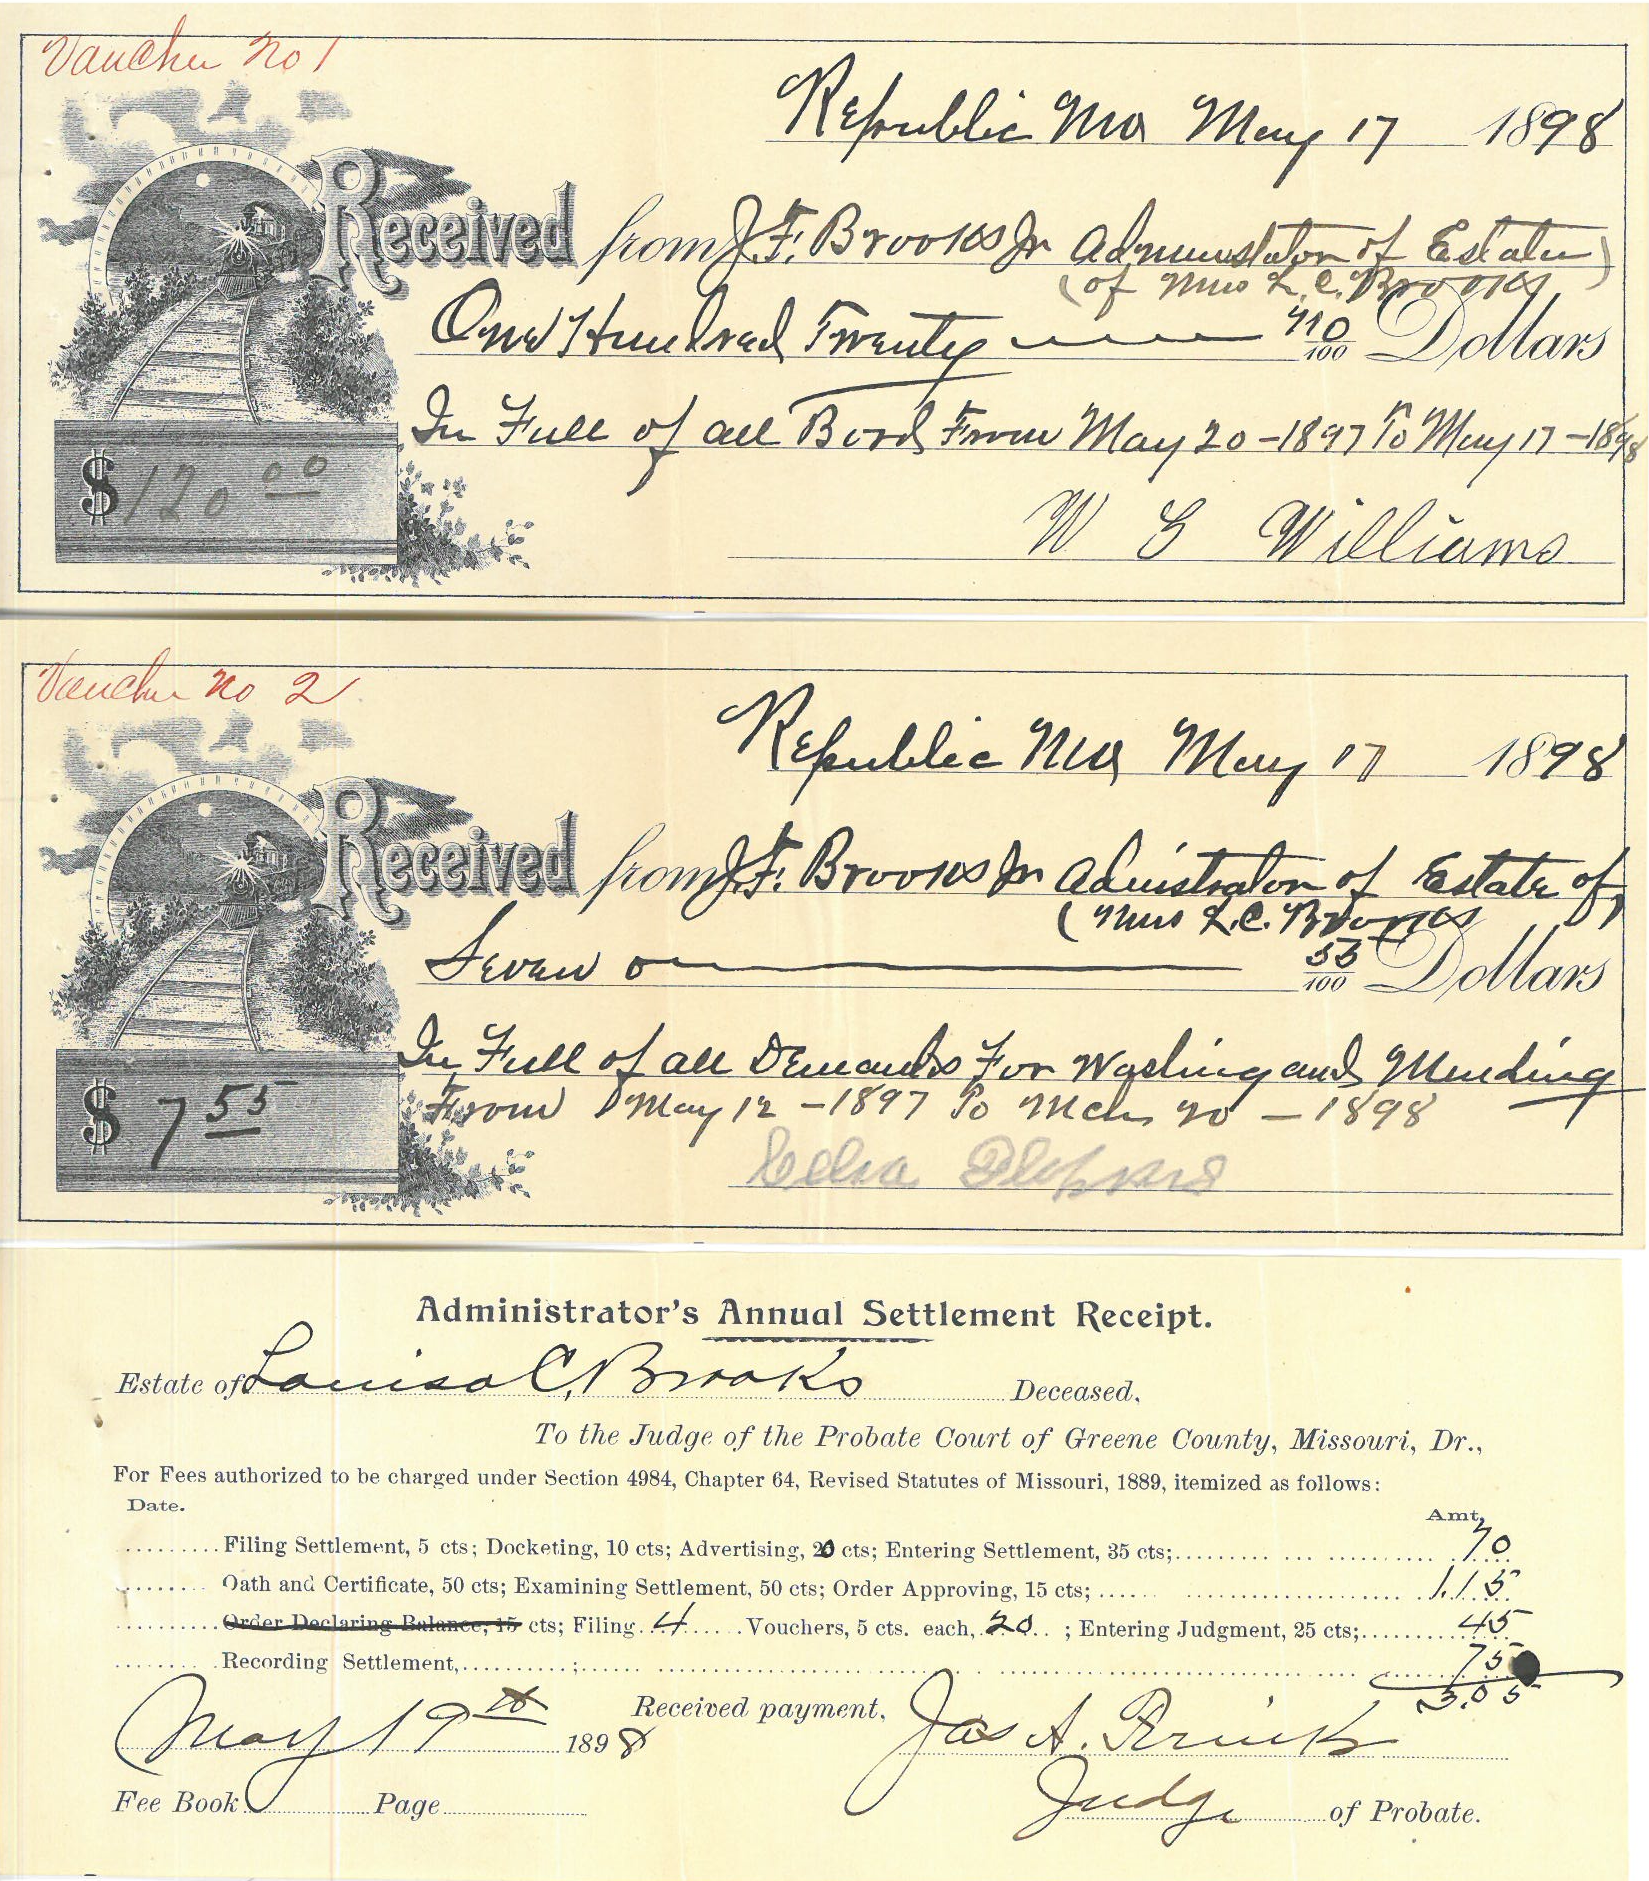 Voucher No 1
Republic Mo May 17 1898
Received from J. F. Brooks Jr Administrator of Estate
(of Mrs L. C. Brooks)
One Hundred Twenty no/100 Dollars
In Full of all Bord From May 20 - 1897 To May 17 - 1898
$ 120 00
W G Williams
Voucher No 2
Republic Mo May 17 1898
Received from J. F. Brooks Jr Adinistrator of Estate of
(Mrs L. C. Brooks
Seven 55/100 Dollars
In Full of all Demands For Washing and Mending
From May 12 - 1897 To Mch 20 - 1898
$ 7 55
Administrator's Annual Settlement Receipt.
Estate of Louisa C. Brooks Deceased.
To the Judge of the Probate Court of Greene County, Missouri, Dr.,
For Fees authorized to be charged under Section 4984, Chapter 64, Revised Statutes of Missouri, 1889, itemized as follows:
Date. Amt.
Filing Settlement, 5 cts; Docketing, 10 cts; Advertising, 20 cts; Entering Settlement, 35 cts; 70
Oath and Certificate, 50 cts; Examining Settlement, 50 cts; Order Approving, 15 cts; 1.15
Order Declaring Balance, 15 cts; Filing 4 Vouchers, 5 cts. each, 20 ; Entering Judgment, 25 cts; 45
Recording Settlement, ; 75
3.05
May 19th 1898 Received payment, Jas A. Frink
Fee Book Page Judge of Probate.